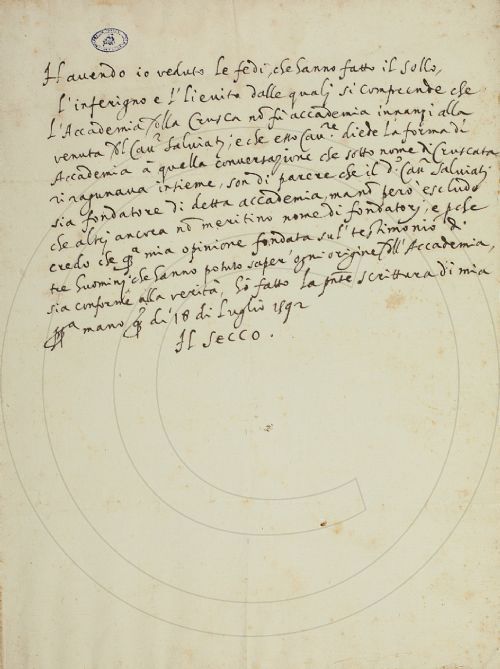 Havendo io veduto le fedi, che hanno fatto il Sollo,
l'inferigno e l'lievito dalle qualj si comprende che
l'Accademia della Crusca nō fu accademia innanzi alla
venuta del Cavr Salviatj; e che esso Cavre diede la forma di
Accademia à quella conversazione che sotto nome di Cruscata
si raunava insieme, son di parere che il do Cavr Salviatj
sia fondatore di detta accademia, ma nō però escludo
che altrj ancora nō meritino nome di fondatorj; e pche
credo che qa mia opinione fondata sul testimonio di
tre huominj che hanno potuto saper ogni origine dell'Accademia,
sia conforme alla verità, hò fatto la pnte scrittura di mia
ppa mano qo di 18 di Luglio 1592
Il Secco.